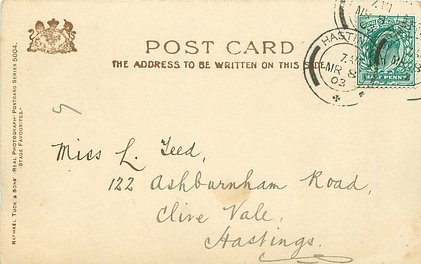 POST CARD
THE ADDRESS TO BE WRITTEN ON THIS SIDE.
HASTINGS
MR 8
03
HALF PENNY
RAPHAEL TUCK & SONS' "REAL PHOTOGRAPH" POSTCARD SERIES 5004.
"STAGE FAVOURITES."
Miss L. Teed,
122 Ashburnham Road,
Clive Vale,
Hastings.